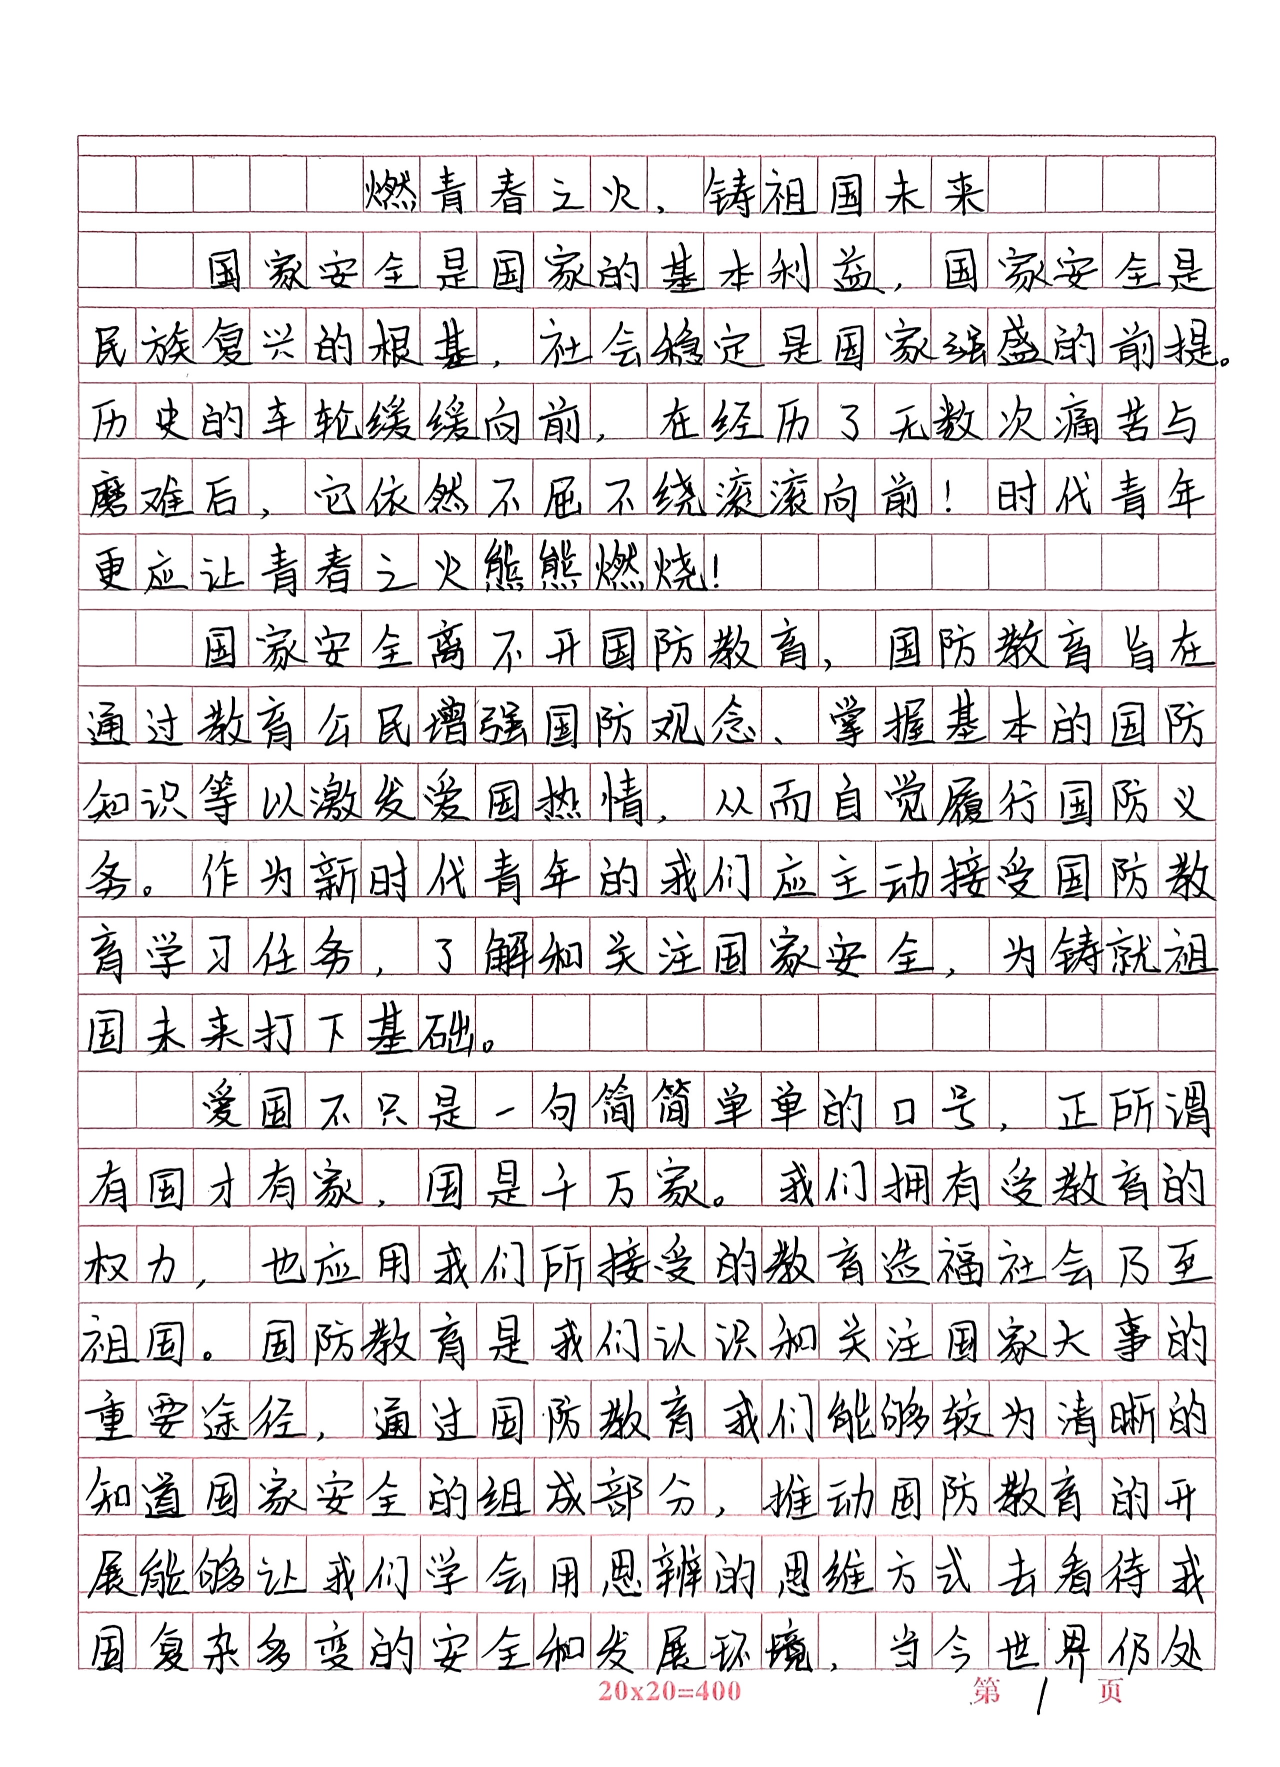 燃青春之火，铸祖国未来
国家安全是国家的基本利益，国家安全是
民族复兴的根基，社会稳定是国家强盛的前提。
历史的车轮缓缓向前，在经历了无数次痛苦与
磨难后，它依然不屈不绕滚滚向前！时代青年
更应让青春之火熊熊燃烧！
国家安全离不开国防教育，国防教育旨在
通过教育公民增强国防观念、掌握基本的国防
知识等以激发爱国热情，从而自觉履行国防义
务。作为新时代青年的我们应主动接受国防教
育学习任务，了解和关注国家安全，为铸就祖
国未来打下基础。
爱国不只是一句简简单单的口号，正所谓
有国才有家，国是千万家。我们拥有受教育的
权力，也应用我们所接受的教育造福社会乃至
祖国。国防教育是我们认识和关注国家大事的
重要途径，通过国防教育我们能够较为清晰的
知道国家安全的组成部分，推动国防教育的开
展能够让我们学会用思辨的思维方式去看待我
国复杂多变的安全和发展环境，当今世界仍处
20x20=400 第1页